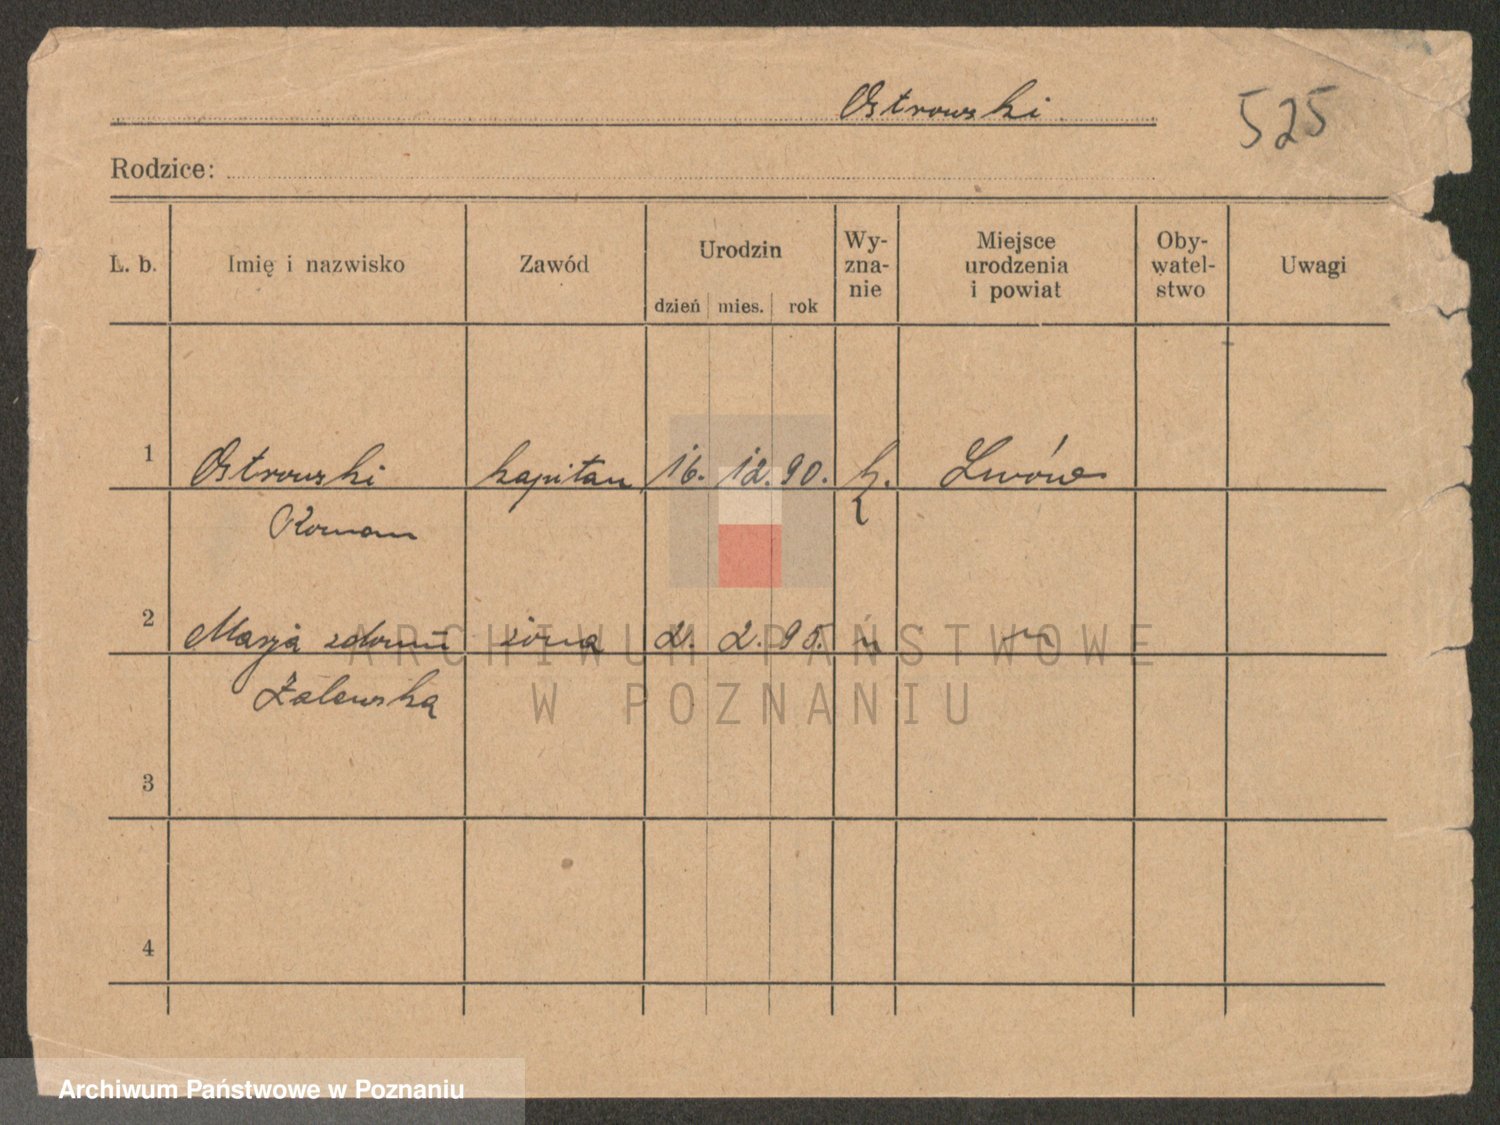 Ostrowski
525
Rodzice:
L. b. Imię i nazwisko Zawód Urodzin dzień mies. rok Wy-zna-nie Miejsce urodzenia i powiat Oby-watel-stwo Uwagi
1 Ostrowski kapitan 16. 12. 90. k. Lwów
Roman
2 Marja zdomu żona 2. 2. 95. " "
Zalewska
3
4
ARCHIWUM PAŃSTWOWE
W POZNANIU
Archiwum Państwowe w Poznaniu